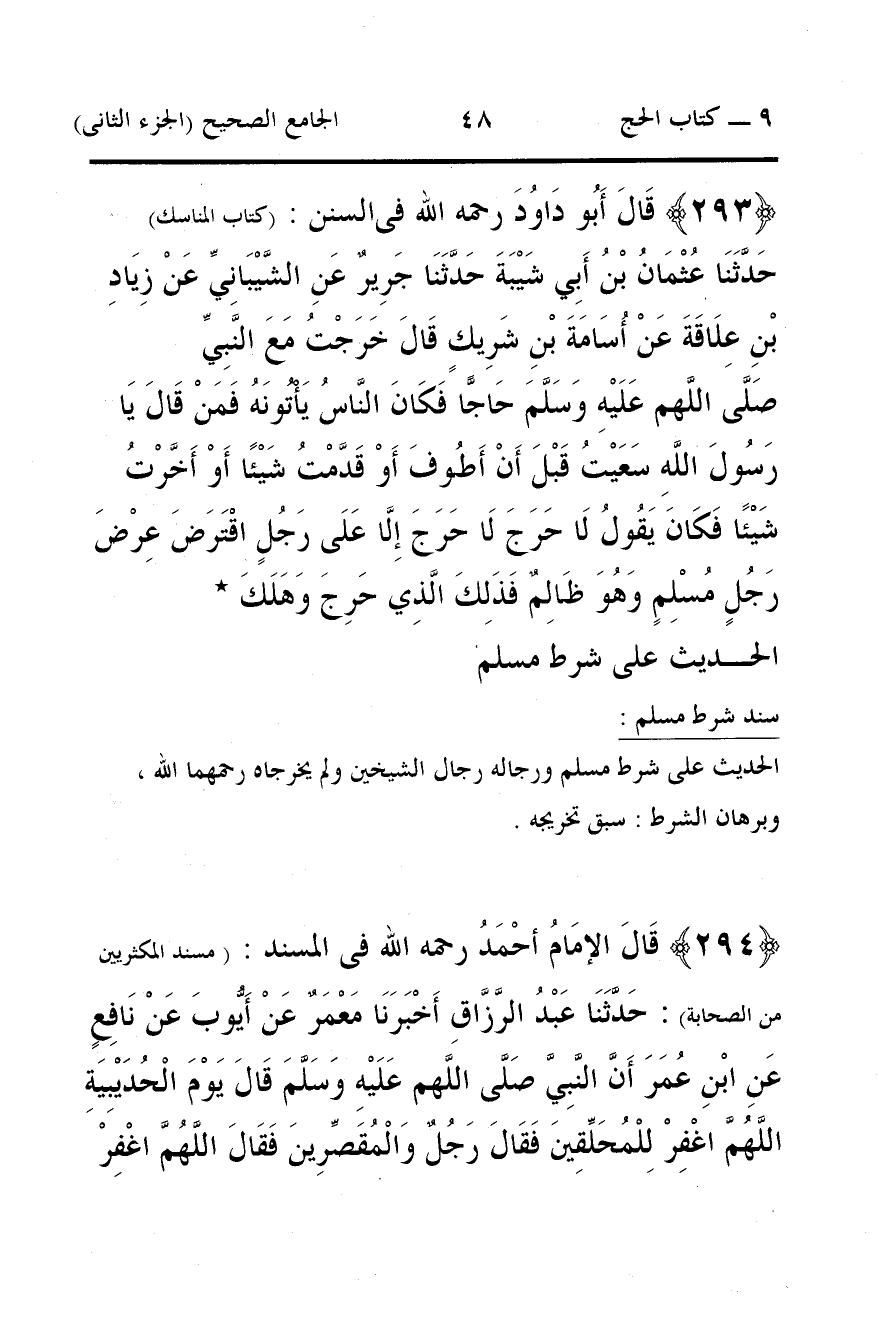 ٩ ــ كتاب الحج ٤٨ الجامع الصحيح (الجزء الثانى)
﴿٢٩٣﴾ قَالَ أَبُو دَاوُدَ رحمه الله فى السنن : (كتاب المناسك)
حَدَّثَنَا عُثْمَانُ بْنُ أَبِي شَيْبَةَ حَدَّثَنَا جَرِيرٌ عَنِ الشَّيْبَانِيِّ عَنْ زِيَادِ
بْنِ عِلَاقَةَ عَنْ أُسَامَةَ بْنِ شَرِيكٍ قَالَ خَرَجْتُ مَعَ النَّبِيِّ
صَلَّى اللهم عَلَيْهِ وَسَلَّمَ حَاجًّا فَكَانَ النَّاسُ يَأْتُونَهُ فَمَنْ قَالَ يَا
رَسُولَ اللَّهِ سَعَيْتُ قَبْلَ أَنْ أَطُوفَ أَوْ قَدَّمْتُ شَيْئًا أَوْ أَخَّرْتُ
شَيْئًا فَكَانَ يَقُولُ لَا حَرَجَ لَا حَرَجَ إِلَّا عَلَى رَجُلٍ اقْتَرَضَ عِرْضَ
رَجُلٍ مُسْلِمٍ وَهُوَ ظَالِمٌ فَذَلِكَ الَّذِي حَرِجَ وَهَلَكَ *
الحـــديث على شرط مسلم
سند شرط مسلم :
الحديث على شرط مسلم ورجاله رجال الشيخين ولم يخرجاه رحمهما الله ،
وبرهان الشرط : سبق تخريجه .
﴿٢٩٤﴾ قَالَ الإمَامُ أحْمَدُ رحمه الله فى المسند : ( مسند المكثريين
من الصحابة) : حَدَّثَنَا عَبْدُ الرَّزَّاقِ أَخْبَرَنَا مَعْمَرٌ عَنْ أَيُّوبَ عَنْ نَافِعٍ
عَنِ ابْنِ عُمَرَ أَنَّ النَّبِيَّ صَلَّى اللهم عَلَيْهِ وَسَلَّمَ قَالَ يَوْمَ الْحُدَيْبِيَةِ
اللَّهُمَّ اغْفِرْ لِلْمُحَلِّقِينَ فَقَالَ رَجُلٌ وَالْمُقَصِّرِينَ فَقَالَ اللَّهُمَّ اغْفِرْ